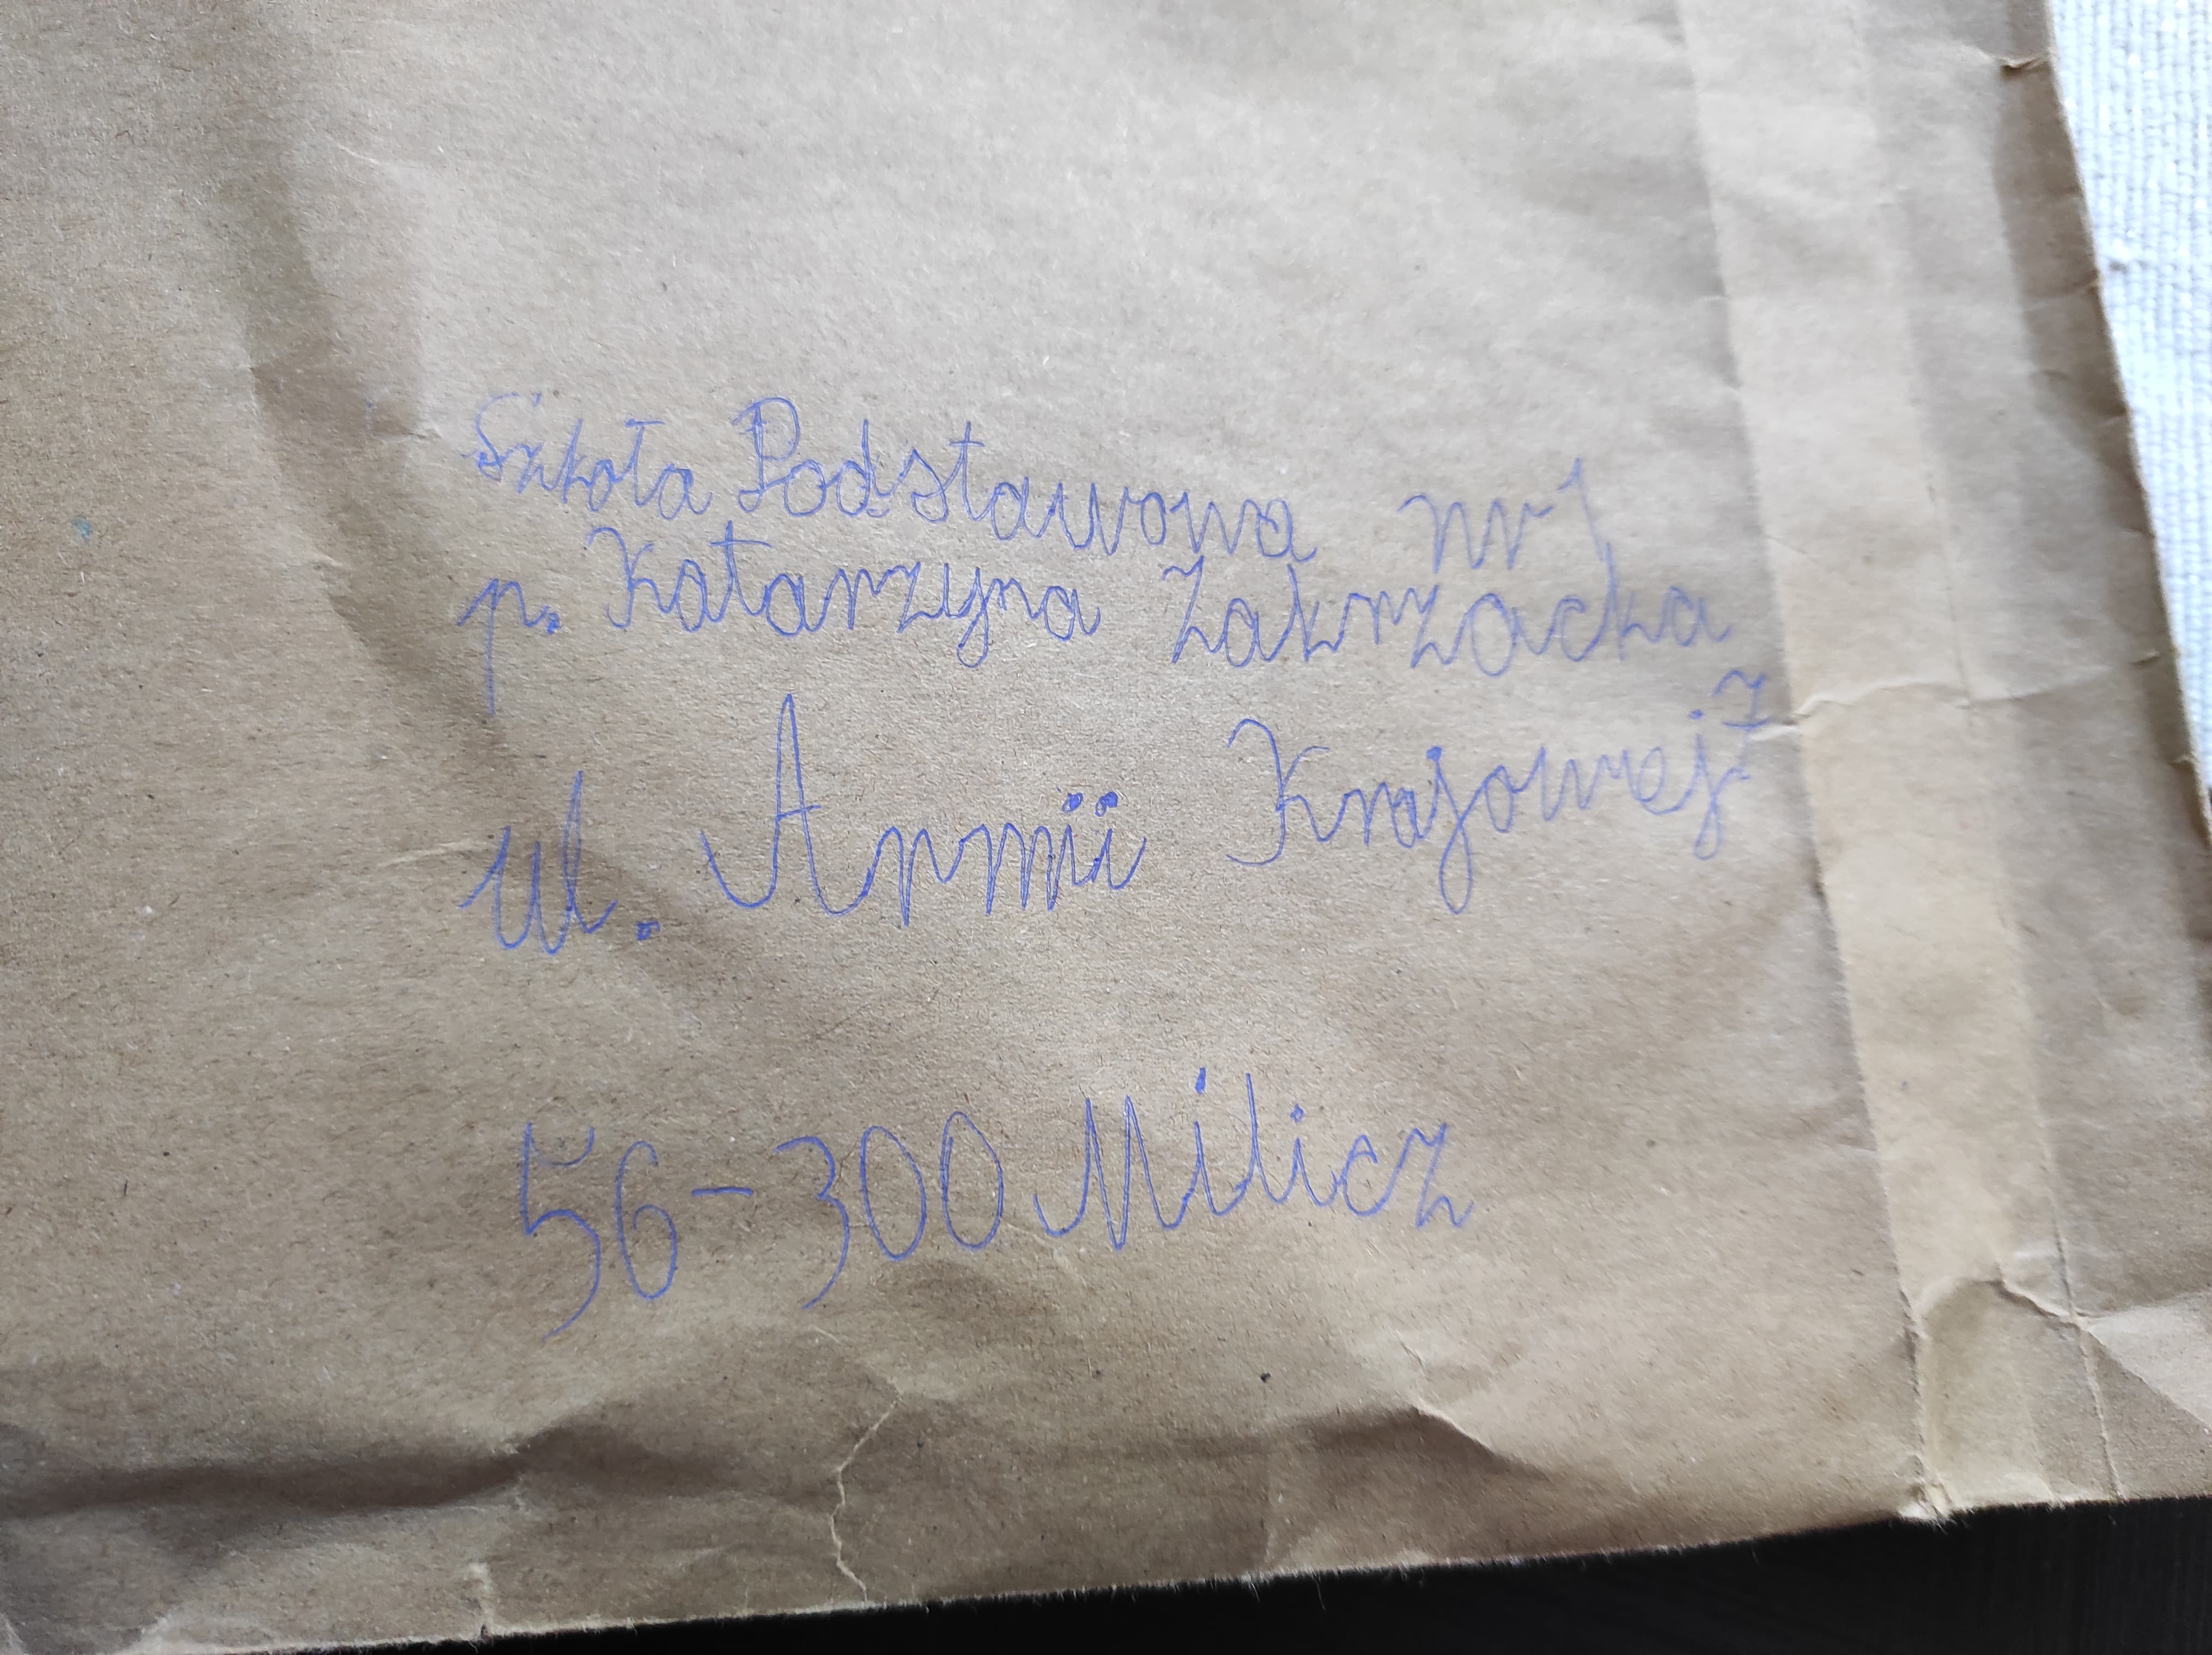 Szkoła Podstawowa nr 1
p. Katarzyna Zakrzacka
ul. Armii Krajowej 7
56-300 Milicz